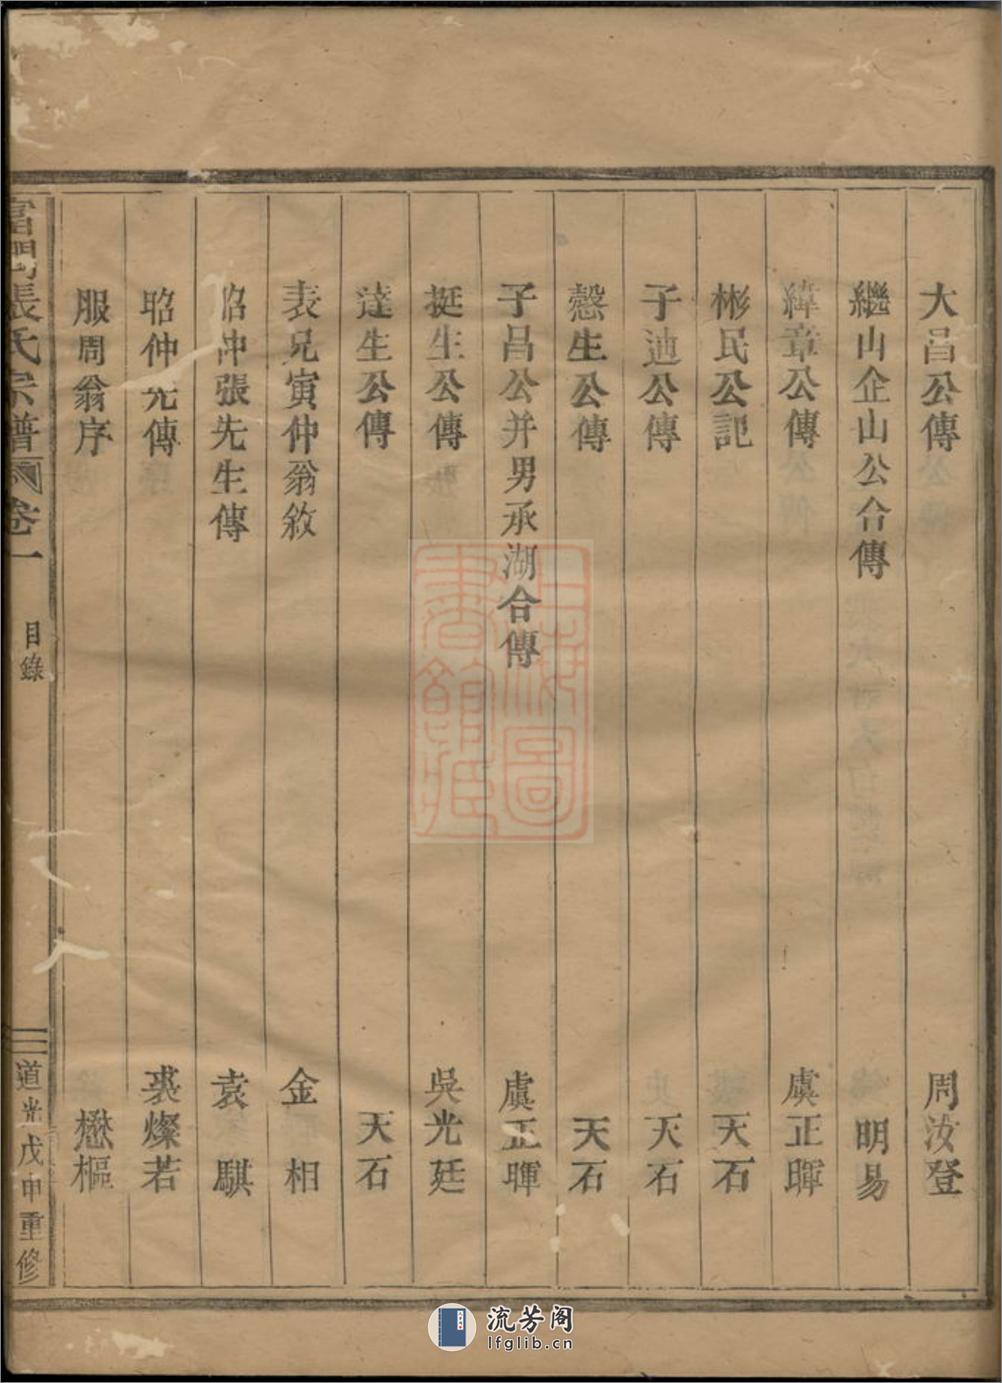 大昌公傳 周汝登
繼山企山公合傳 明易
緯章公傳 虞正暉
彬民公記 天石
子迪公傳 天石
慤生公傳 天石
子昌公并男承湖合傳 虞正暉
挺生公傳 吳光廷
達生公傳 天石
表兄寅仲翁敘 金相
昭仲張先生傳 袁騏
昭仲先傳 裘燦若
服周翁序 懋樞
富 張氏宗譜 卷一 目錄 三 道光戊申重修
上海圖書館藏
流芳阁
lfglib.cn